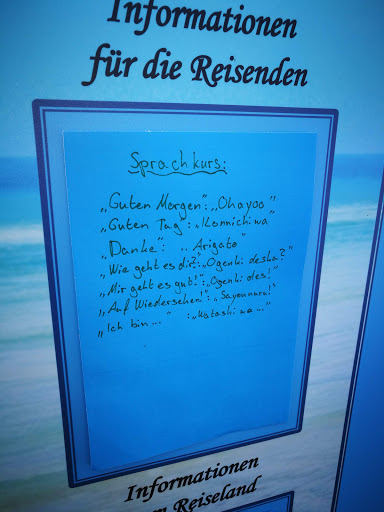 Informationen
für die Reisenden
Sprachkurs:
„Guten Morgen": „Ohayoo"
„Guten Tag": „Konnichiwa"
„Danke": „Arigato"
„Wie geht es dir?": „Ogenki deska?"
„Mir geht es gut!": „Ogenki des!"
„Auf Wiedersehen!": „Sayounara!"
„Ich bin..." : „Watashi wa..."
Informationen
Reiseland